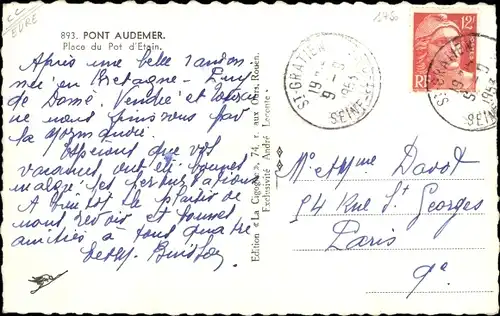 CC
EURE
1950
893. PONT AUDEMER.
Place du Pot d'Etain.
Après une belle randon-
née en Bretagne - Puy
de Dome. Vendée et
nous finissons par
la Normandie.
Espérons que vos
vacances ont été bonnes
malgré les perturbations
A bientôt le plaisir de
vous revoir et bonnes
amitiés à tous quatre
Edition « La Cigogne », 74, r. aux Ours, Rouen.
Exclusivité André Lecomte.
ST-GRATIEN
19
9-9
SEINE-ET
12F
RF
ST-GRATIEN
19
Mr et Mme Davot
54 Rue St Georges
Paris
9e